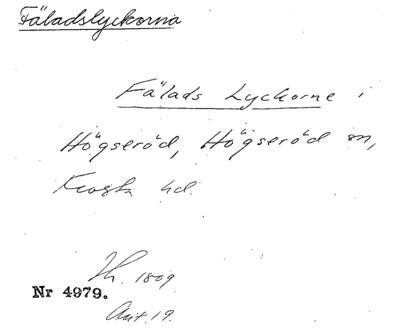 Fäladslyckorna
Fälads Lyckorne i
Högseröd, Högseröd sn,
Frosta hd.
Th. 1809
Nr 4979.
Akt. 19.